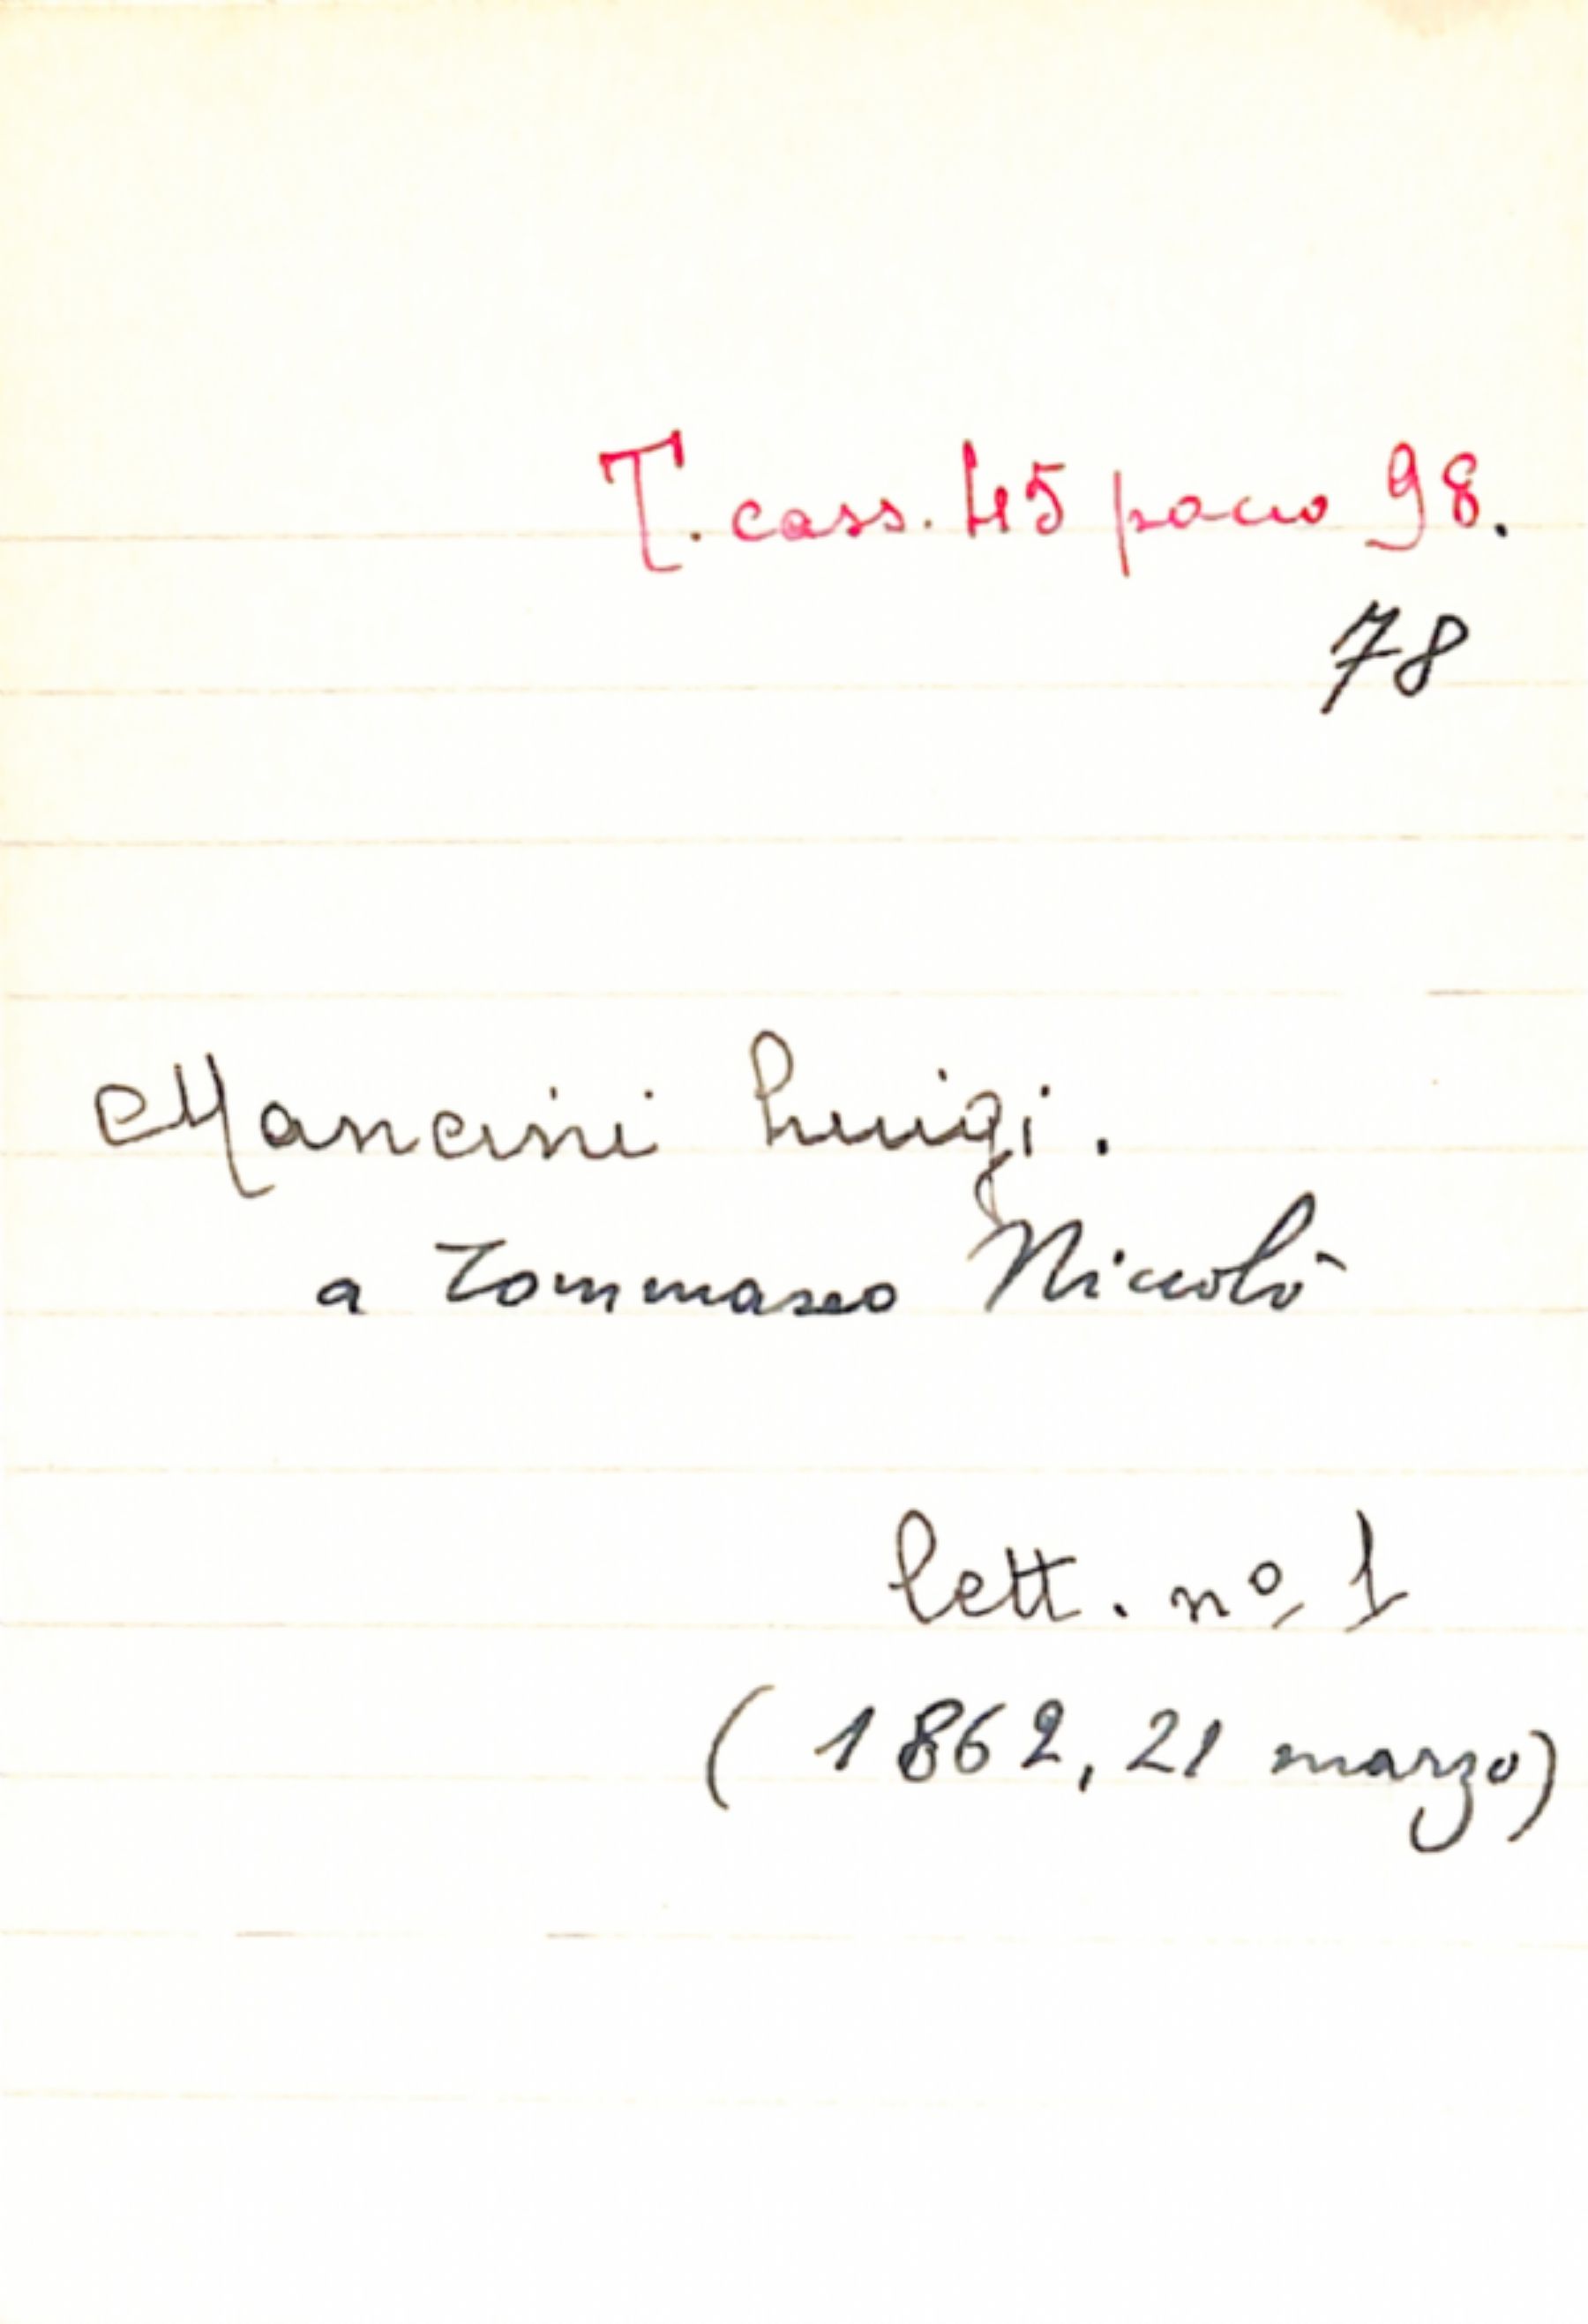 T. cass. 45 pacco 98.
78
Mancini Luigi.
a Tommaseo Niccolò
lett. nº 1
( 1862, 21 marzo)